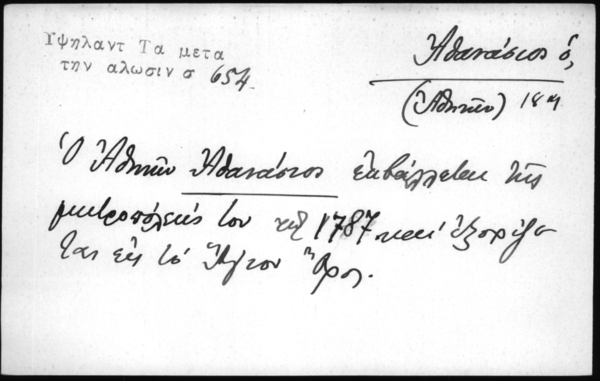 Υψηλαντ Τα μετα
την αλωσιν σ 654.
Ἀθανάσιος ὁ,
(Ἀθηνῶν) 18η
Ὁ Ἀθηνῶν Ἀθανάσιος ἐκβάλλεται τῆς
μητροπόλεώς του τῷ 1787 καί ἐξορίζε
ται εἰς τό Ἅγιον Ὄρος.